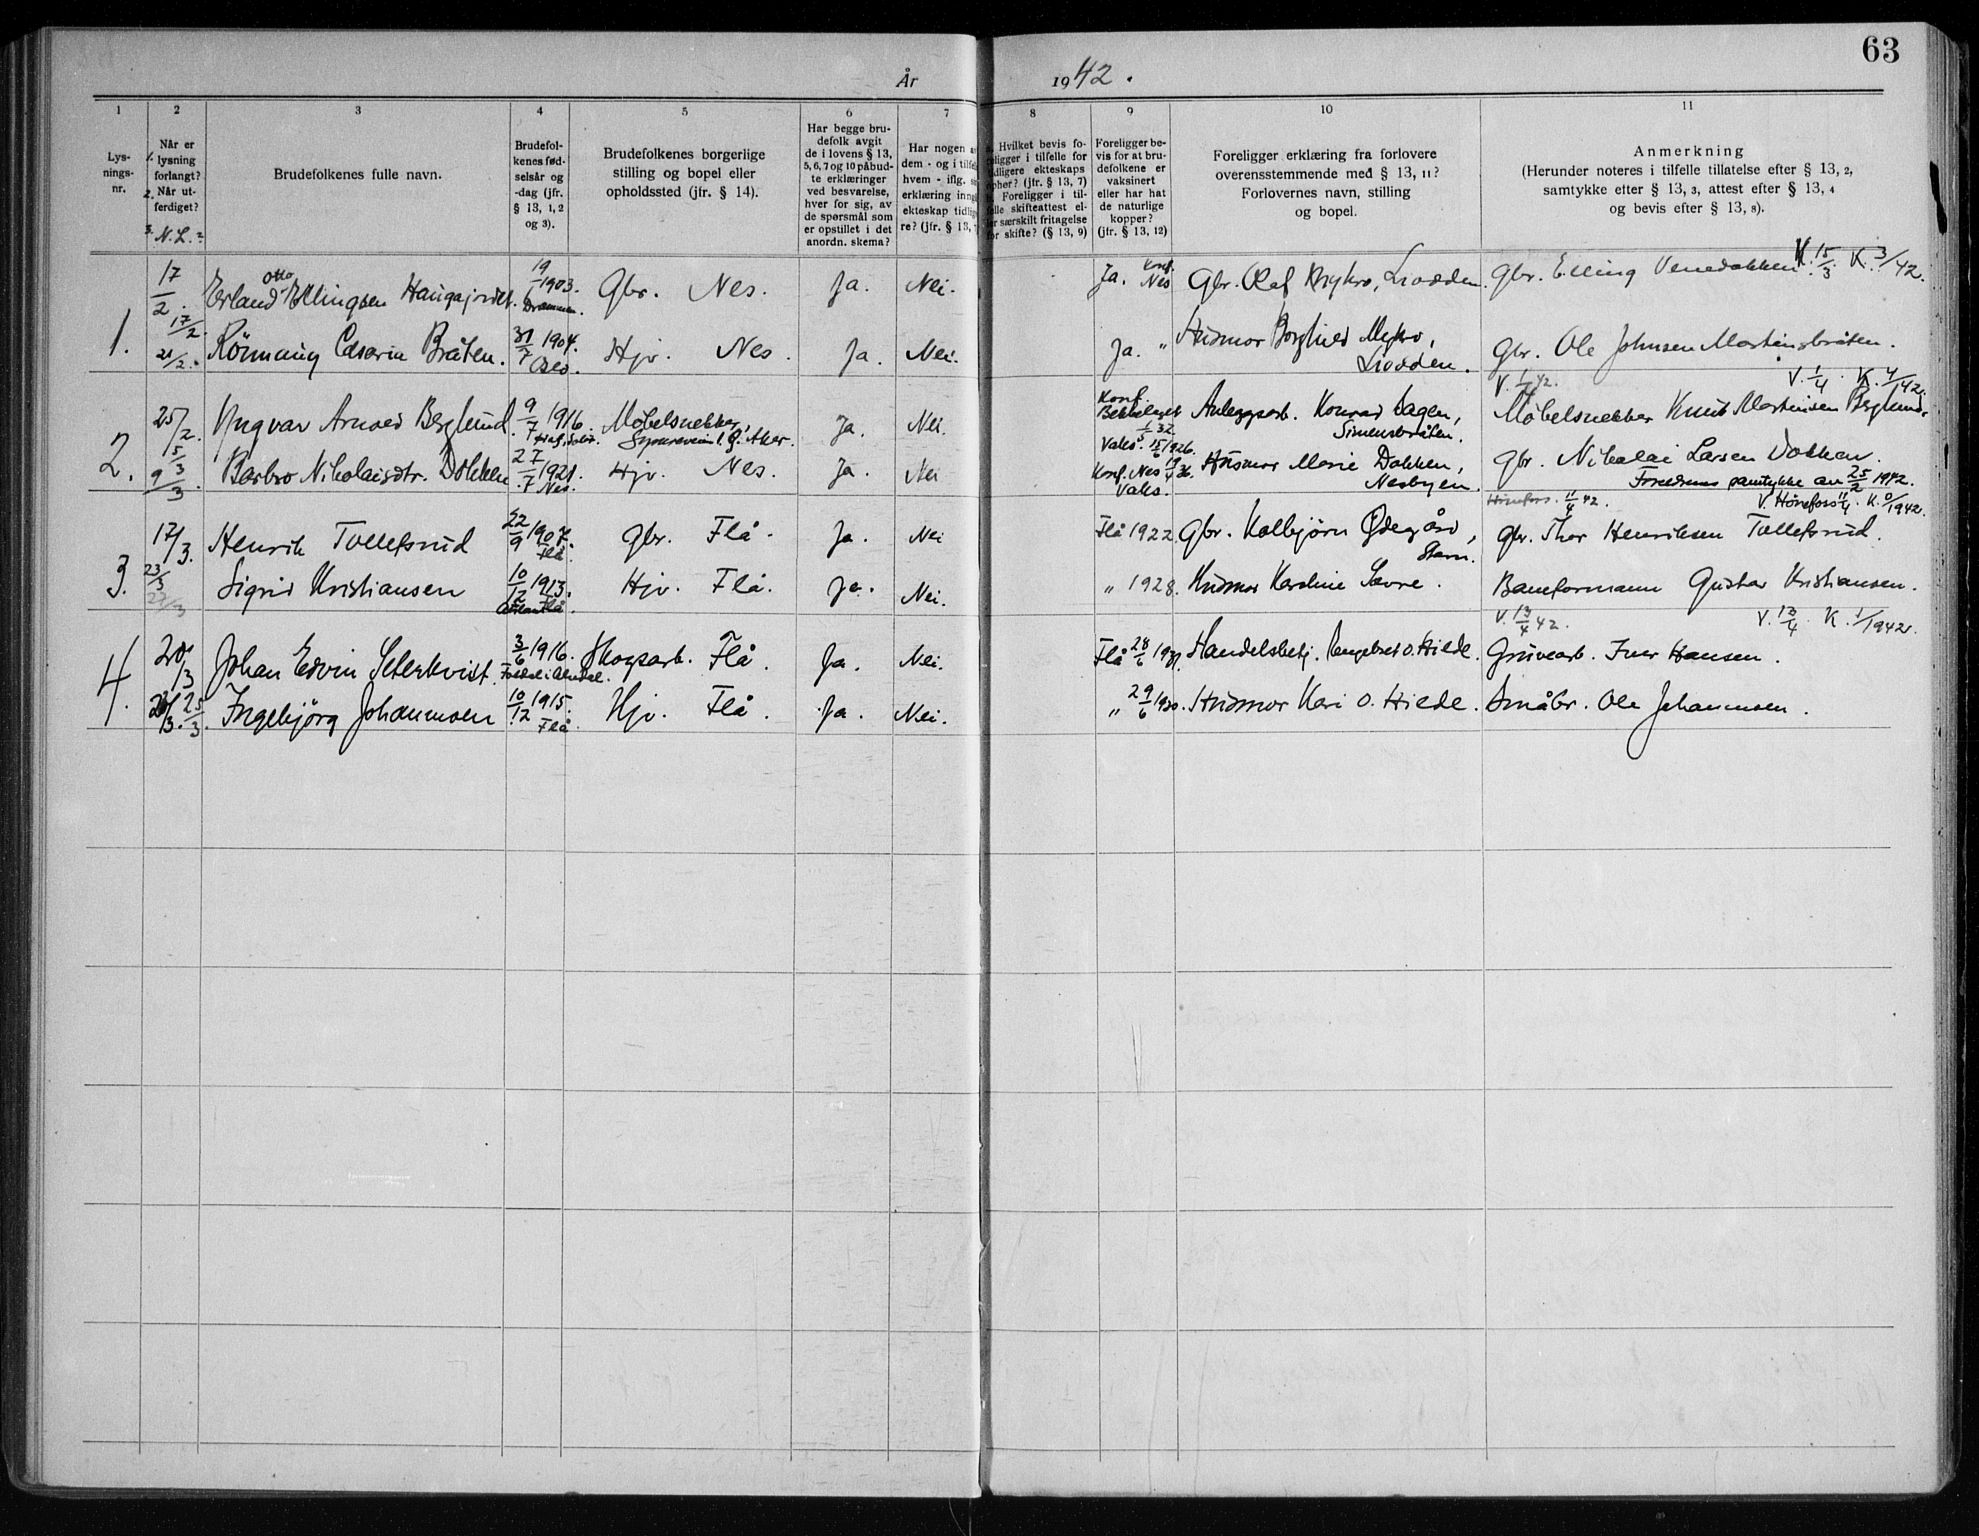 63
År 1942.
1 2 3 4 5 6 7 8 9 10 11
Lysningsnr.
1. Når er lysning forlangt?
2. Når utferdiget?
3. N. L.?
Brudefolkenes fulle navn.
Brudefolkenes fødselsår og -dag (jfr. § 13, 1, 2 og 3).
Brudefolkenes borgerlige stilling og bopel eller opholdssted (jfr. § 14).
Har begge brudefolk avgit de i lovens § 13, 5, 6, 7 og 10 påbudte erklæringer ved besvarelse, hver for sig, av de spørsmål som er opstillet i det anordn. skema?
Har nogen av dem - og i tilfelle hvem - iflg. erklæring inngått ekteskap tidligere? (jfr. § 13,
Hvilket bevis foreligger i tilfelle for tidligere ekteskaps ophør? (jfr. § 13, 7) Foreligger i tilfelle skifteattest eller særskilt fritagelse for skifte? (§ 13, 9)
Foreligger bevis for at brudefolkene er vaksinert eller har hat de naturlige kopper? (jfr. § 13, 12)
Foreligger erklæring fra forlovere overensstemmende med § 13, 11? Forlovernes navn, stilling og bopel.
Anmerkning
(Herunder noteres i tilfelle tillatelse efter § 13, 2, samtykke etter § 13, 3, attest efter § 13, 4 og bevis efter § 13, 8).
V. 15/3 K. 3/42.
1. 17/2. Erland Otto Ellingsen Haugajordet. 1903. Drammen. Gbr. Nes. Ja. Nei. Ja. Konf. Nes Gbr. Olaf Myhro, Liodden. Gbr. Elling Venedokken.
17/2. 21/2. Rönnaug Casarin Bråten. 31/7 1904. Oslo. Hjv. Nes. Ja. Nei. Ja. " Husmor Borghild Myhro, Liodden. Gbr. Ole Johnsen Martinsbråten.
V. 1/4 42. V. 1/4. K. 4/1942.
2. 25/2. Yngvar Arnold Berglund. 9/7 1916. Møbelsnekker, Aker. Ja. Nei. Konf. Bekkelaget 32. Vaks. 15/6 1926. Anleggsarb. Konrad Dagen, Simensbråten. Møbelsnekker Knut Martinsen Berglund.
5/3 9/3. Barbro Nikolaisdtr. Dokken 27/7 1921. Nes. Hjv. Nes. Ja. Nei Konf. Nes 19/4 36. Vaks. Husmor Marie Dokken, Nesbyen. Gbr. Nikolai Larsen Dokken.
Foreldrenes samtykke av 25/2 1942.
Hönefoss. 11/4 42. V. Hönefoss 11/4. K. 0/1942.
3. 17/3. Henrik Tollefsrud 22/9 1907. Flå. Gbr. Flå. Ja. Nei Flå 1922. Gbr. Kolbjørn Ødegård, Stavn. Gbr. Thor Henriksen Tollefsrud.
23/3 27/3 Sigrid Kristiansen 10/12 1913. Flå. Hjv. Flå. Ja. Nei. " 1928. Husmor Karoline Sævre. Baneformann Gustav Kristiansen.
V. 13/4 42. V. 13/4. K. 1/1942.
4. 20/3 Johan Edvin Seterkvist. 3/6 1916. Skogsarb. Flå. Ja. Nei. Flå 28/6 1931. Handelsbetj. Engebret O. Hilde. Gruvearb. Iver Hansen.
25/3. Ingebjörg Johannsen 10/12 1915. Flå. Hjv. Flå. Ja. Nei. " 29/6 1930. Husmor Kari O. Hilde. Småbr. Ole Johannsen.